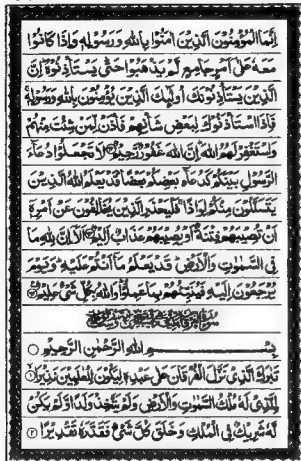 اِنَّمَا الْمُؤْمِنُوْنَ الَّذِيْنَ اٰمَنُوْا بِاللّٰهِ وَرَسُوْلِهٖ وَاِذَا كَانُوْا
مَعَهٗ عَلٰٓى اَمْرٍ جَامِعٍ لَّمْ يَذْهَبُوْا حَتّٰى يَسْتَاْذِنُوْهُ ؕ اِنَّ
الَّذِيْنَ يَسْتَاْذِنُوْنَكَ اُولٰٓئِكَ الَّذِيْنَ يُؤْمِنُوْنَ بِاللّٰهِ وَرَسُوْلِهٖ
فَاِذَا اسْتَاْذَنُوْكَ لِبَعْضِ شَاْنِهِمْ فَاْذَنْ لِّمَنْ شِئْتَ مِنْهُمْ
وَاسْتَغْفِرْ لَهُمُ اللّٰهَ ؕ اِنَّ اللّٰهَ غَفُوْرٌ رَّحِيْمٌ لَا تَجْعَلُوْا دُعَآءَ
الرَّسُوْلِ بَيْنَكُمْ كَدُعَآءِ بَعْضِكُمْ بَعْضًا ؕ قَدْ يَعْلَمُ اللّٰهُ الَّذِيْنَ
يَتَسَلَّلُوْنَ مِنْكُمْ لِوَاذًا ۚ فَلْيَحْذَرِ الَّذِيْنَ يُخَالِفُوْنَ عَنْ اَمْرِهٖٓ
اَنْ تُصِيْبَهُمْ فِتْنَةٌ اَوْ يُصِيْبَهُمْ عَذَابٌ اَلِيْمٌ اَلَآ اِنَّ لِلّٰهِ مَا
فِى السَّمٰوٰتِ وَالْاَرْضِ ؕ قَدْ يَعْلَمُ مَآ اَنْتُمْ عَلَيْهِ ؕ وَيَوْمَ
يُرْجَعُوْنَ اِلَيْهِ فَيُنَبِّئُهُمْ بِمَا عَمِلُوْا ؕ وَاللّٰهُ بِكُلِّ شَىْءٍ عَلِيْمٌ
بِسْمِ اللّٰهِ الرَّحْمٰنِ الرَّحِيْمِ
تَبٰرَكَ الَّذِيْ نَزَّلَ الْفُرْقَانَ عَلٰى عَبْدِهٖ لِيَكُوْنَ لِلْعٰلَمِيْنَ نَذِيْرًا ۱
الَّذِيْ لَهٗ مُلْكُ السَّمٰوٰتِ وَالْاَرْضِ وَلَمْ يَتَّخِذْ وَلَدًا وَّلَمْ يَكُنْ
لَّهٗ شَرِيْكٌ فِى الْمُلْكِ وَخَلَقَ كُلَّ شَىْءٍ فَقَدَّرَهٗ تَقْدِيْرًا ۲